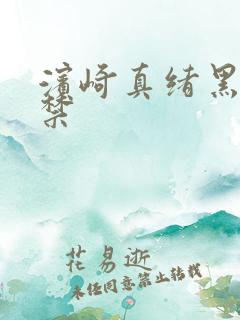 濱崎真緒黑
禁
花易逝
未经同意禁止转载